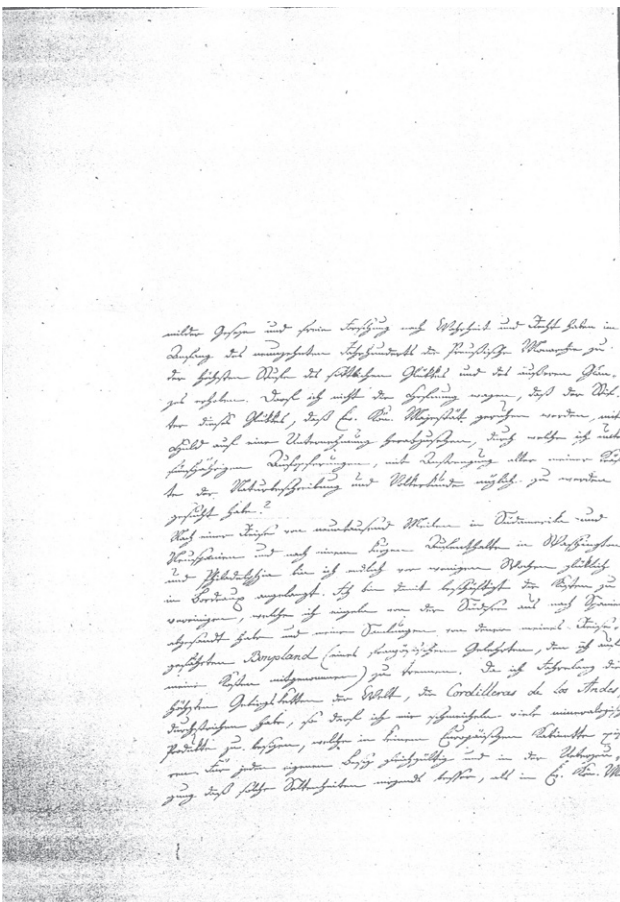 milder Gesetze und freien Forschung nach Wahrheit und Recht haben im
Anfang des neunzehnten Jahrhunderts die Preußische Monarchie zu
der höchsten Stufe des sittlichen Glükkes und des äußeren Glan-
zes erhoben. Darf ich nicht die Hofnung wagen, daß der Stif-
ter dieses Glükkes, daß Ew. Kön. Majestät geruhen werden, mit
Huld auf eine Unternehmung herabzusehen, durch welche ich unter
fünfjährigen Aufopferungen, mit Anstrengung aller meiner Kräf-
te der Naturbeschreibung und Völkerkunde nüzlich zu werden
gesucht habe?
Nach einer Reise von neuntausend Meilen in Südamerika und
Neuspanien und nach einem kurzen Aufenthalte in Washington
und Philadelphia bin ich endlich vor wenigen Wochen glüklich
in Bordeaux angelangt. Ich bin damit beschäftigt die Kisten zu
vereinigen, welche ich einzeln von der Südsee aus nach Spanien
abgesandt habe und meine Samlungen von denen meines Reise-
gefährten Bonpland (eines französischen Gelehrten, den ich auf
meine Kosten mitgenommen) zu trennen. Da ich Jahrelang die
höchsten Gebirgsketten der Welt, die Cordilleras de los Andes,
durchstrichen habe, so darf ich mir schmeicheln viele mineralogische
Produkte zu besizen, welche in keinem Europäischen Kabinette
Für jeden eigenen Besiz gleichgültig und in der Ueberzeu-
gung daß solche Seltenheiten nirgends besser, als in Ew. Kön.